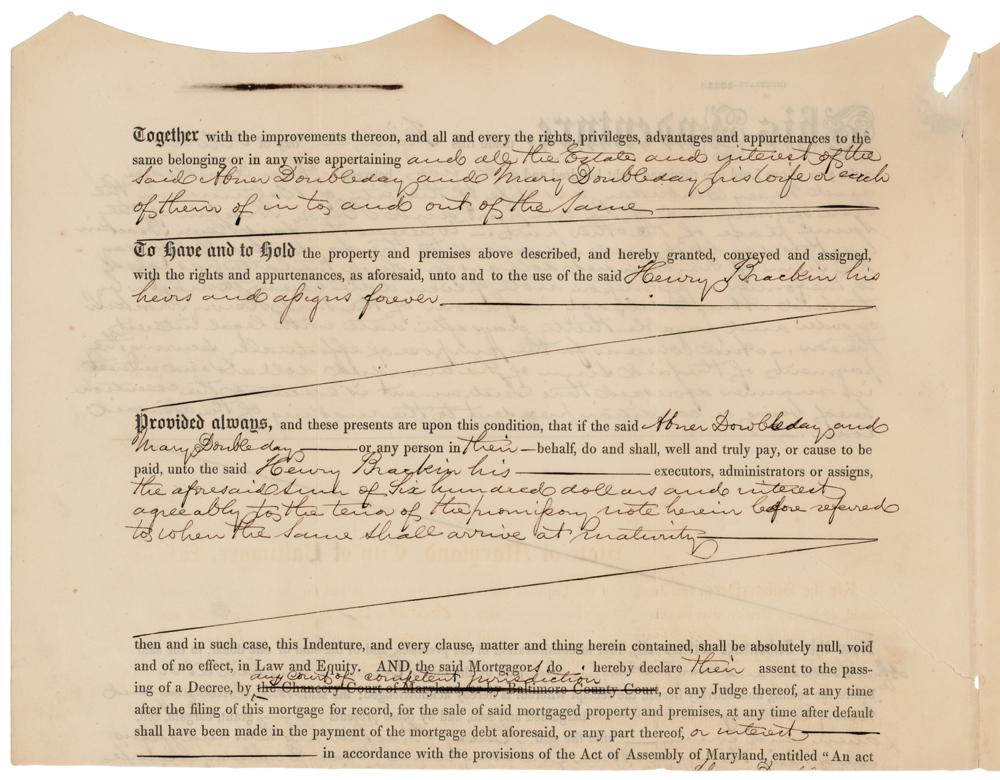 Together with the improvements thereon, and all and every the rights, privileges, advantages and appurtenances to the
same belonging or in any wise appertaining and all the Estate and interest of the
said Abner Doubleday and Mary Doubleday his wife or each
of them of in to and out of the same
To Have and to Hold the property and premises above described, and hereby granted, conveyed and assigned,
with the rights and appurtenances, as aforesaid, unto and to the use of the said Henry Brackin his
heirs and assigns forever.
Provided always, and these presents are upon this condition, that if the said Abner Doubleday and
Mary Doubleday or any person in their behalf, do and shall, well and truly pay, or cause to be
paid, unto the said Henry Brackin his executors, administrators or assigns,
the aforesaid sum of Six hundred dollars and interest
agreeably to the tenor of the promissory note herein before refered
to when the same shall arrive at maturity
then and in such case, this Indenture, and every clause, matter and thing herein contained, shall be absolutely null, void
and of no effect, in Law and Equity. AND the said Mortgagors do hereby declare their assent to the pass-
any court of competent jurisdiction
ing of a Decree, by the Chancery Court of Maryland, or by Baltimore County Court, or any Judge thereof, at any time
after the filing of this mortgage for record, for the sale of said mortgaged property and premises, at any time after default
shall have been made in the payment of the mortgage debt aforesaid, or any part thereof, or interest
in accordance with the provisions of the Act of Assembly of Maryland, entitled "An act